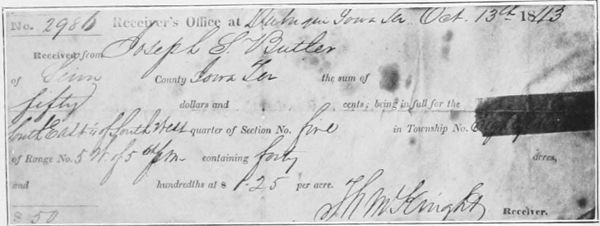 No. 2986 Receiver's Office at Dubuque Iowa Ter. Oct. 13th 1843
Received from Joseph S. Butler
of Linn County Iowa Ter the sum of
fifty dollars and cents; being in full for the
South East ¼ of South West quarter of Section No. five in Township No.
of Range No. 5 W. of 5 containing forty acres,
and hundredths at $ 1.25 per acre.
$ 50 Th McKnight Receiver.